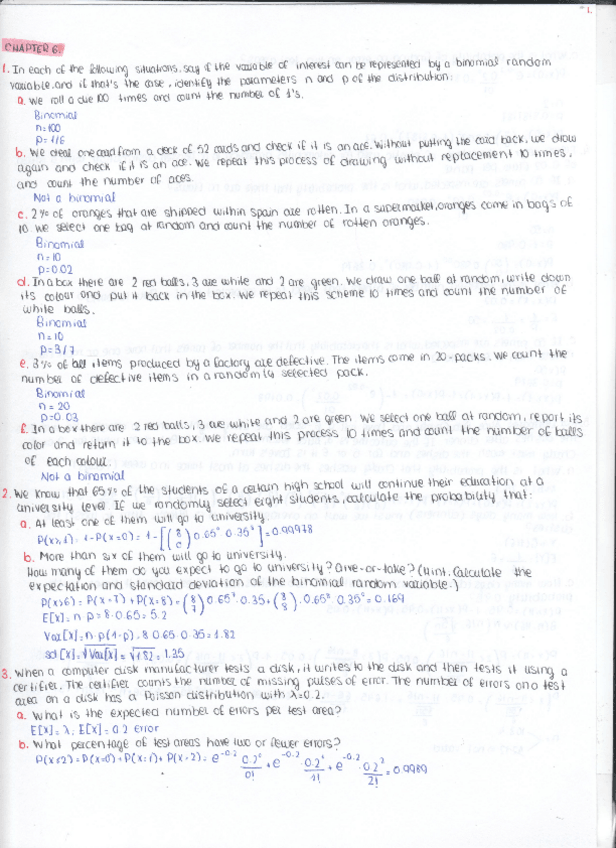 1.
CHAPTER 6.
1. In each of the following situations, say if the variable of interest can be represented by a binomial random
variable, and if that's the case, identify the parameters n and p of the distribution.
a. We roll a die 100 times and count the number of 1's.
Binomial
n=100
p=1/6
b. We deal one card from a deck of 52 cards and check if it is an ace. Without putting the card back, we draw
again and check if it is an ace. We repeat this process of drawing without replacement 10 times,
and count the number of aces.
Not a binomial
c. 2% of oranges that are shipped within Spain are rotten. In a supermarket, oranges come in bags of
10. We select one bag at random and count the number of rotten oranges.
Binomial
n=10
p=0.02
d. In a box there are 2 red balls, 3 are white and 2 are green. We draw one ball at random, write down
its colour and put it back in the box. We repeat this scheme 10 times and count the number of
white balls.
Binomial
n=10
p=3/7
e. 3% of all items produced by a factory are defective. The items come in 20-packs. We count the
number of defective items in a randomly selected pack.
Binomial
n=20
p=0.03
f. In a box there are 2 red balls, 3 are white and 2 are green. We select one ball at random, report its
color and return it to the box. We repeat this process 10 times and count the number of balls
of each colour.
Not a binomial
2. We know that 65% of the students of a certain high school will continue their education at a
university level. If we randomly select eight students, calculate the probability that:
a. At least one of them will go to university.
P(X≥1) = 1-P(X=0) = 1-[(8 0) 0.65⁰ 0.35⁸] = 0.99978
b. More than six of them will go to university.
How many of them do you expect to go to university? Give-or-take? (Hint. Calculate the
expectation and standard deviation of the binomial random variable.)
P(X>6) = P(X=7) + P(X=8) = (8 7) 0.65⁷ 0.35 + (8 8) 0.65⁸ 0.35⁰ = 0.169
E[X] = n·p = 8·0.65 = 5.2
Var[X] = n·p(1-p) = 8·0.65·0.35 = 1.82
sd[X] = √Var[X] = √1.82 = 1.35
3. When a computer disk manufacturer tests a disk, it writes to the disk and then tests it using a
certifier. The certifier counts the number of missing pulses of error. The number of errors on a test
area on a disk has a Poisson distribution with λ=0.2.
a. What is the expected number of errors per test area?
E[X] = λ; E[X] = 0.2 error
b. What percentage of test areas have two or fewer errors?
P(X≤2) = P(X=0) + P(X=1) + P(X=2) = e^-0.2 0.2⁰/0! + e^-0.2 0.2¹/1! + e^-0.2 0.2²/2! = 0.9989